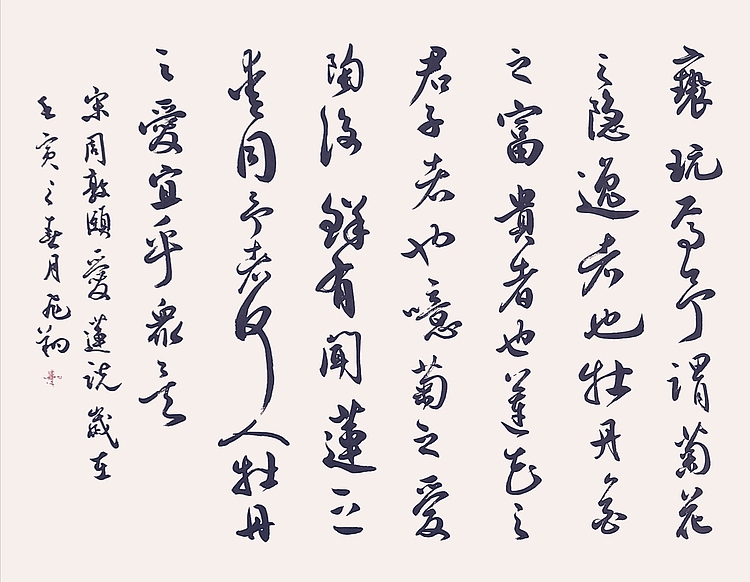 褻玩焉予謂菊花
之隱逸者也牡丹花
之富貴者也蓮花之
君子者也噫菊之愛
陶後鮮有聞蓮之
愛同予者何人牡丹
之愛宜乎衆矣
宋周敦頤愛蓮說歲在
壬寅之春月飛翔